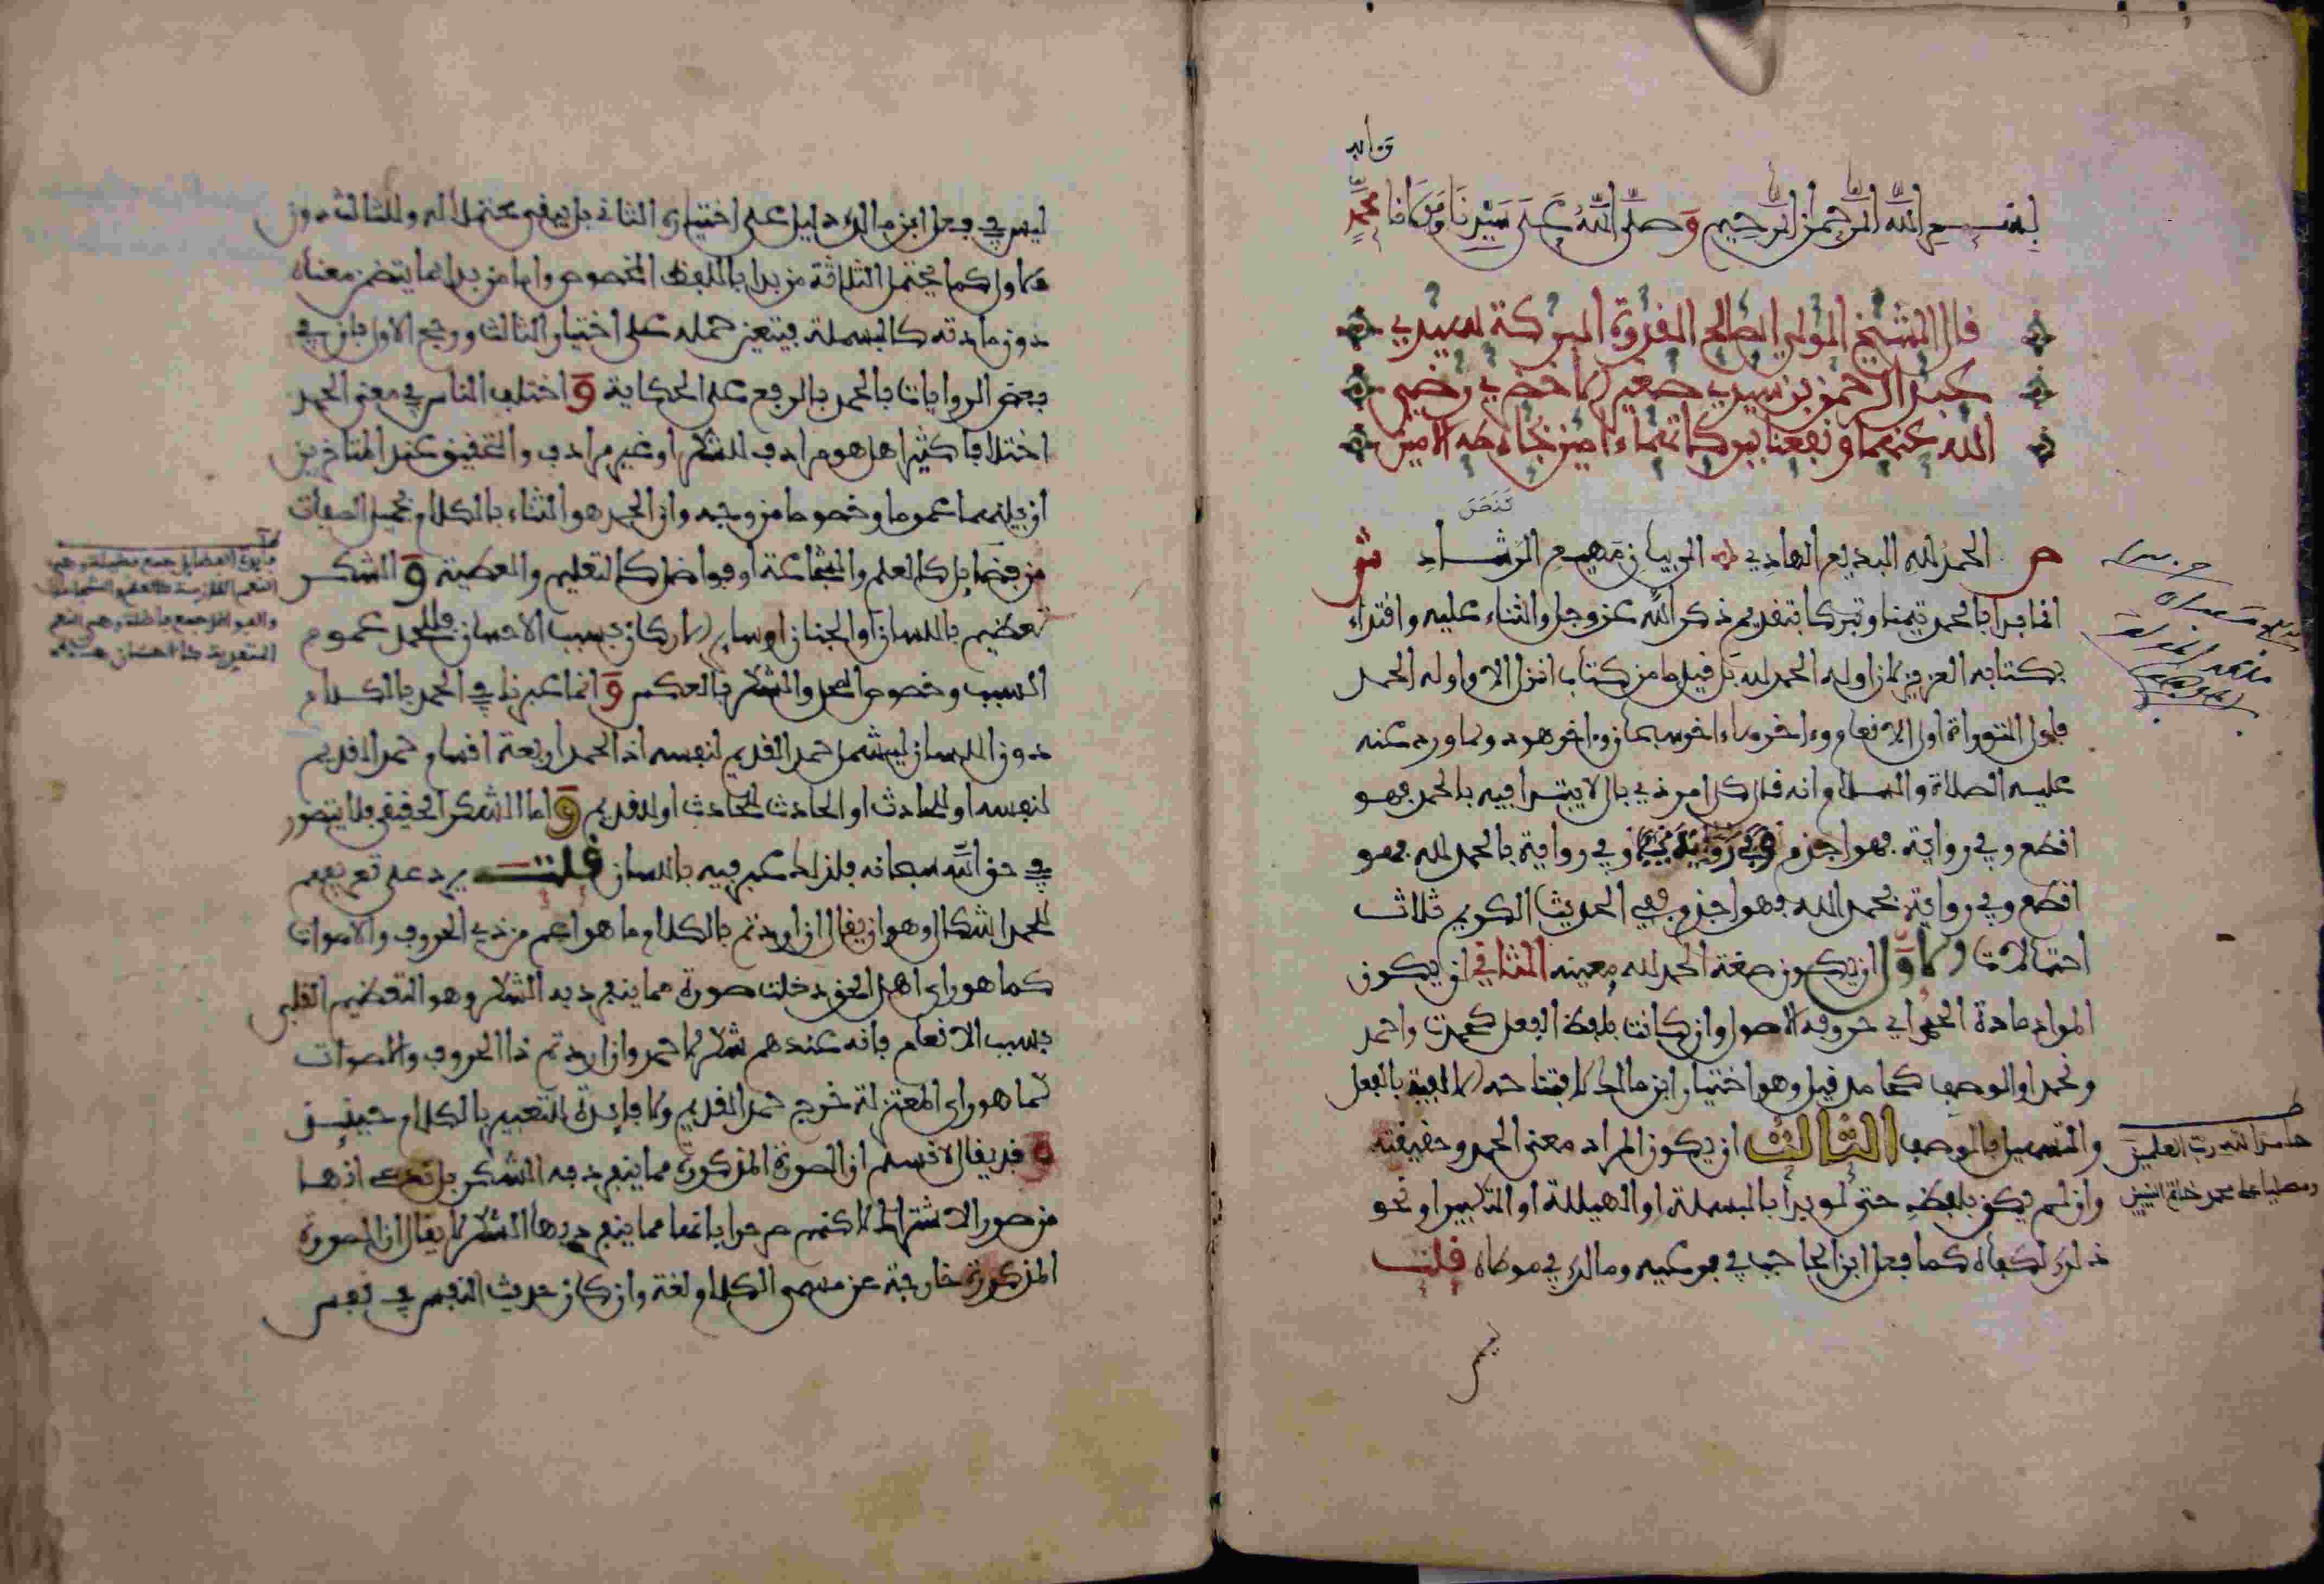 بسم الله الرحمن الرحيم وصلى الله على سيدنا ومولانا محمد
وءاله
قال الشيخ الولي الصالح القدوة البركة سيدي
عبد الرحمن بن سيدي صغير الاخضري رضي
الله عنهما ونفعنا ببركاتهما ءامين بجاه طه الامين
ص الحمد لله البديع الهادي الى بيان مهيع الرشاد ش
انما بدا بالحمد تيمنا وتبركا بتقديم ذكر الله عز وجل والثناء عليه واقتداء
بكتابه العزيز لان اوله الحمد لله بل قيل ما من كتاب انزل الا واوله الحمد
فاول التوراة اول الانعام وءاخرها ءاخر سبحان وءاخر هود ولما ورد عنه
عليه الصلاة والسلام انه قال كل امر ذي بال لا يبتدا فيه بالحمد فهو
اقطع وفي رواية فهو اجذم وفي رواية بالحمد لله فهو
اقطع وفي رواية بحمد الله فهو اجذم ففي الحديث الكريم ثلاث
احتمالات الاول ان يكون صغة الحمد لله بعينه الثاني ان يكون
المراد مادة الحمد اي حروفه الاصول وان كانت بلفظ الفعل كحمدت واحمد
ونحمد او الوصف كحامد قيل وهو اختيار ابن مالك لافتتاحه الالفية بالفعل
والتسهيل بالوصف الثالث ان يكون المراد معنى الحمد وحقيقته
حامدا لله رب العلمين
ومصليا على محمد خاتم النبيين
وان لم يكن بلفظه حتى لو بدأ بالبسملة او الهيللة او التكبير او نحو
ذلك لكفاه كما فعل ابن الحاجب في فرعيه ومالك في موطاه قلت
ليس في فعل ابن مالك دليل على اختياره الثاني بل يبقى محتملا له وللثالث دون
الاول كما يحتمل الثلاثة من بدا باللفظ المخصوص واما من بدا بما يتضمن معناه
دون مادته كالبسملة فيتعين حمله على اختيار الثالث ورجح الاول بان في
بعض الروايات بالحمد بالرفع على الحكاية و اختلف الناس في معنى الحمد
اختلافا كثيرا هل هو مرادف للشكر او غير مرادف والتحقيق عند المتاخرين
ان بينهما عموما وخصوصا من وجه وان الحمد هو الثناء بالكلام بجميل الصفات
من فضايل كالعلم والشجاعة او فواضل كالتعليم والعطية و الشكر
تعظيم باللسان او الجنان او ساير الاركان بسبب الاحسان فللحمد عموم
السبب وخصوص المحل والشكر بالعكس و انما عبرنا في الحمد بالكلام
دون اللسان ليشمل حمد القديم لنفسه اذ الحمد اربعة اقسام حمد القديم
لنفسه او للحادث او الحادث للحادث او للقديم و اما الشكر الحقيقي فلا يتصور
في حق الله سبحانه فلذلك عبر فيه باللسان قلت يرد على تعريفهم
للحمد اشكال وهو ان يقال ان اردتم بالكلام ما هو اعم من ذي الحروف والاصوات
كما هو راي اهل الحق دخلت صورة مما ينفرد به الشكر وهو التعظيم القلبي
بسبب الانعام فانه عندهم شكر لا حمد وان اردتم ذا الحروف والاصوات
كما هو راي المعتزلة خرج حمد القديم ولا فايدة للتعبير بالكلام حينئذ
و قد يقال لا نسلم ان الصورة المذكورة مما ينفرد به الشكر بل ندعي انها
من صور الاشتراك لاكنهم صرحوا بانها مما ينفرد بها الشكر لا يقال ان الصورة
المذكورة خارجة عن مسمى الكلام لغة وان كان حديث النفس في نفس